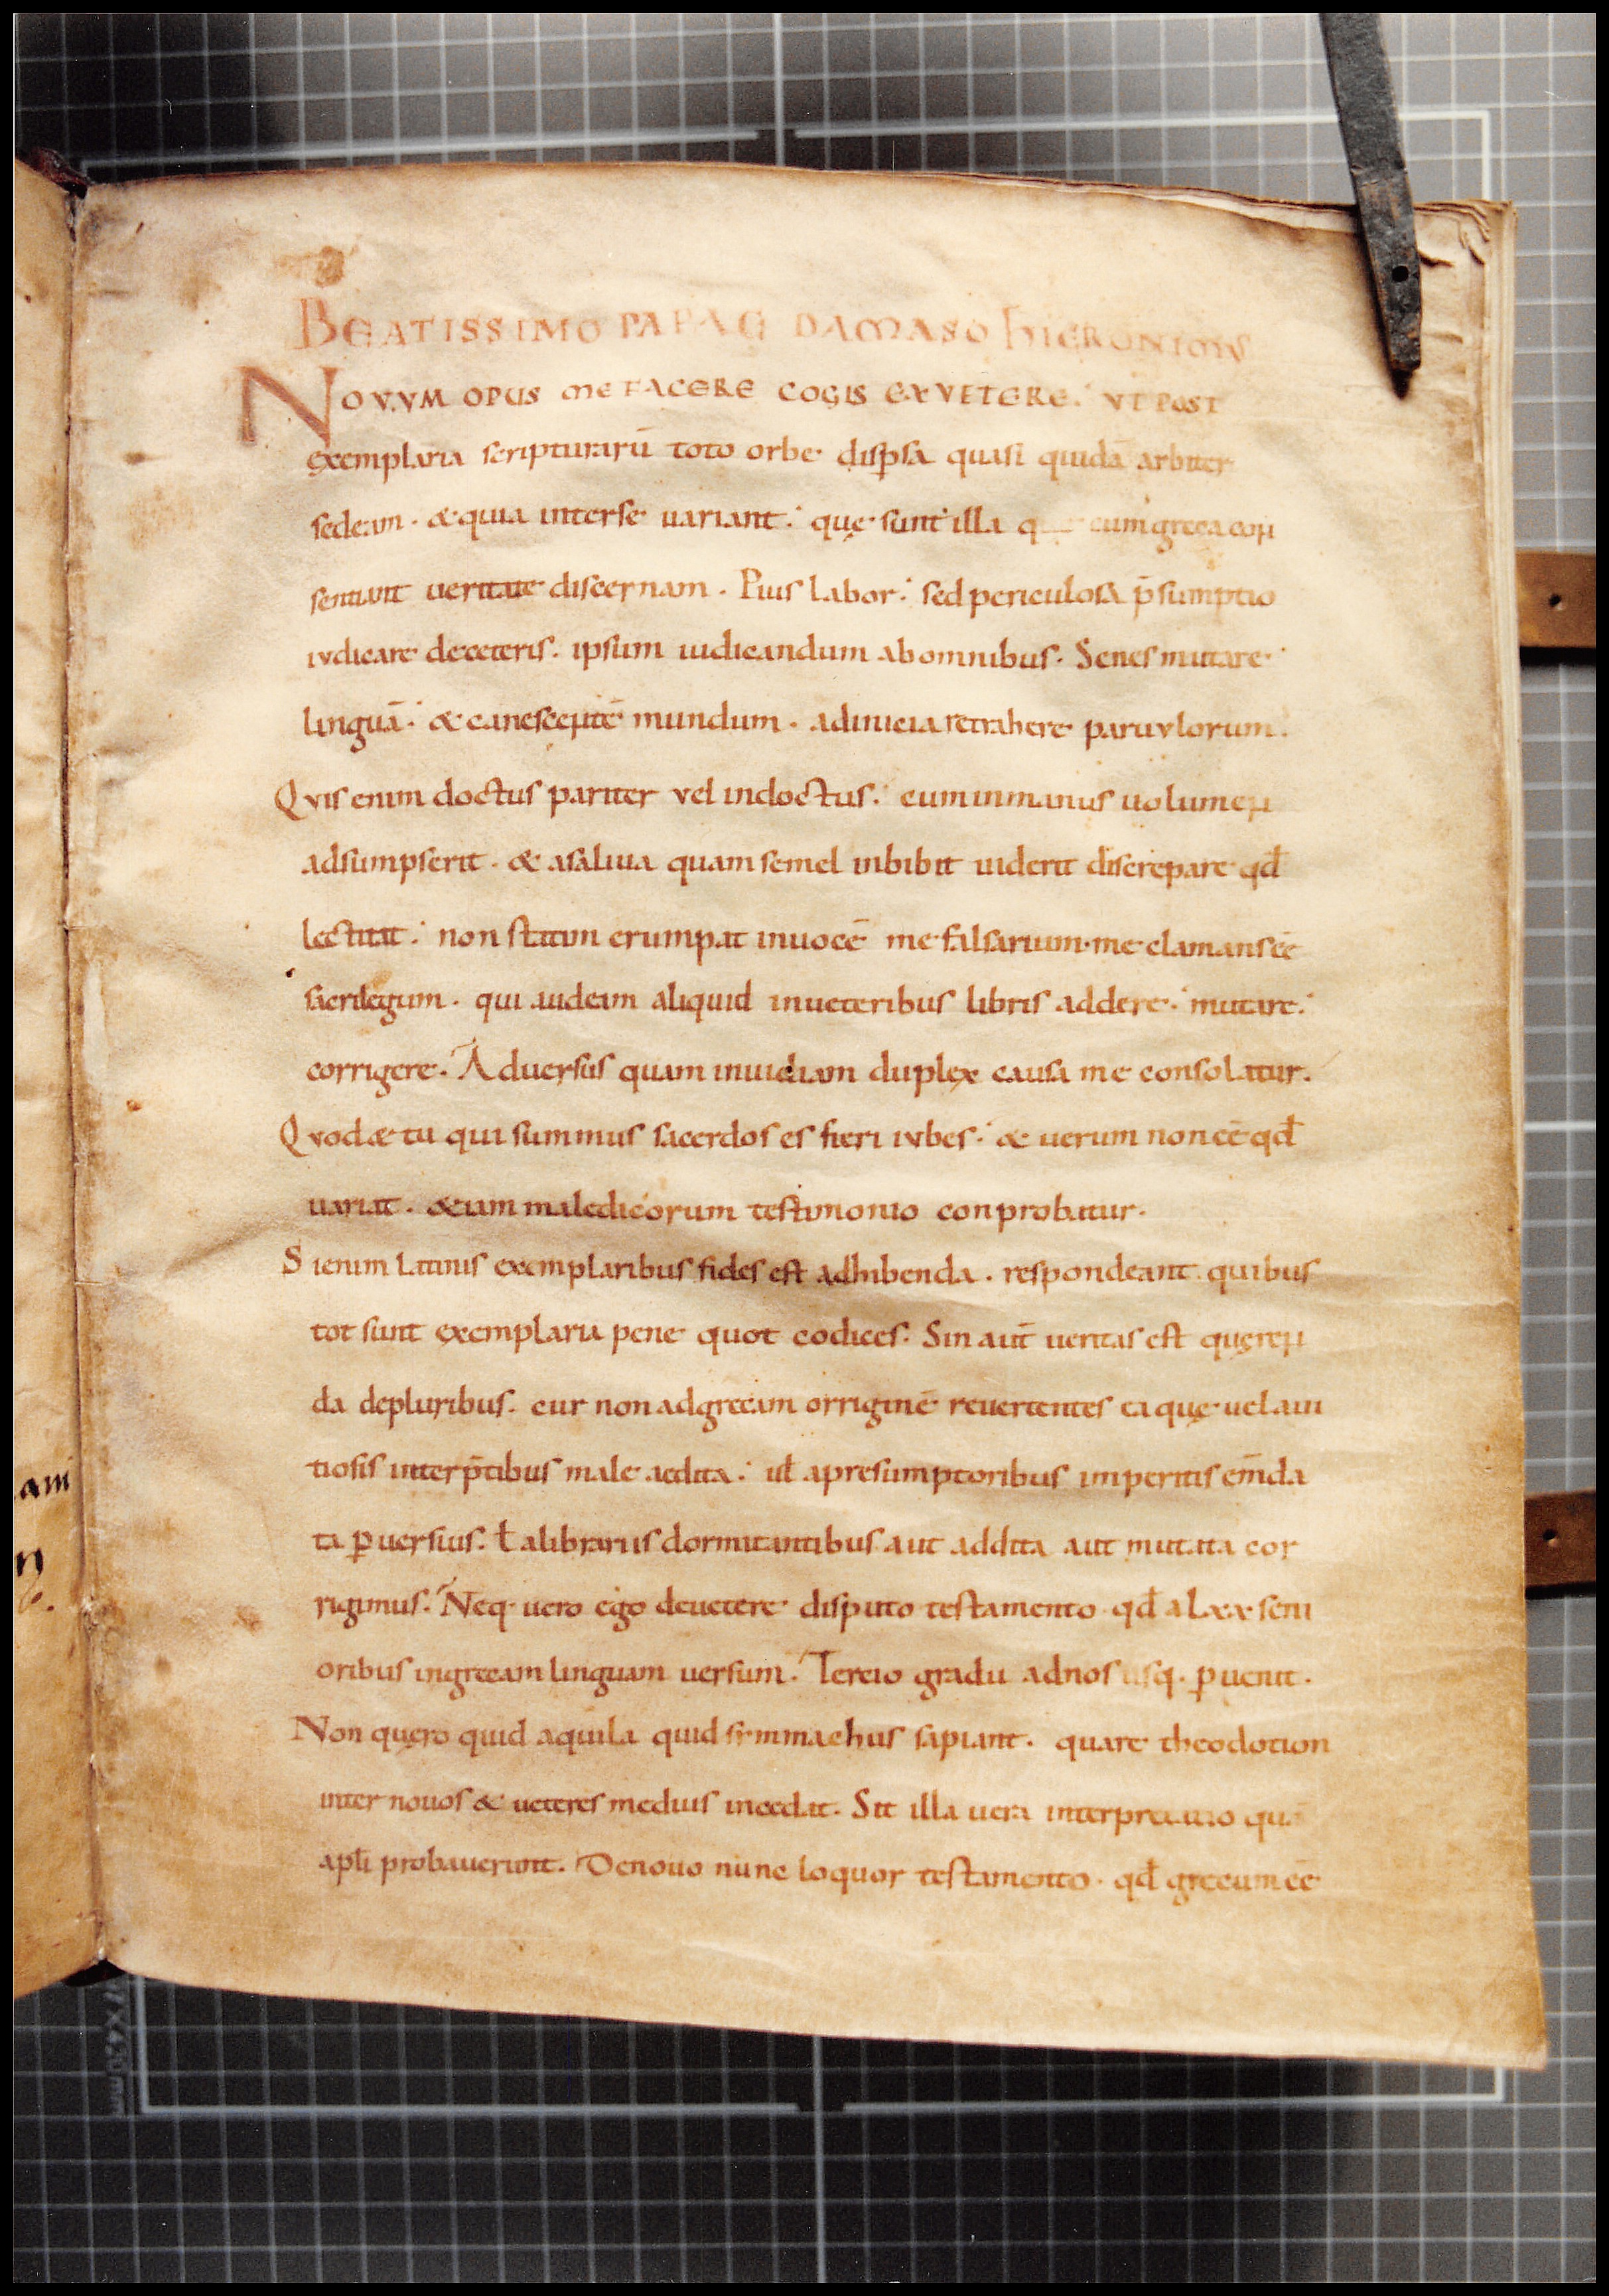 BEATISSIMO PAPAE DAMASO HIERONIMUS
NOVVM OPUS ME FACERE COGIS EX VETERE. VT POST
exemplaria scripturarū toto orbe disꝑsa quasi quidā arbiter
sedeam. & quia interse uariant. quę sunt illa cum greca con
sentiant ueritate discernam. Pius labor. sed periculosa p̄sumptio
iudicare deceteris. ipsum iudicandum ab omnibus. Senes mutare
linguā. & canescentē mundum. adinicia retrahere paruulorum.
Quis enim doctus pariter vel indoctus. cum inmanus uolumen
adsumpserit. & asaliua quam semel inbibit uiderit discrepare qđ
lectitat. non statim erumpat inuocē me falsarium. me clamans eē
sacrilegum. qui audeam aliquid inueteribus libris addere. mutare.
corrigere. Aduersus quam inuidiam duplex causa me consolatur.
Quod & tu qui summus sacerdos es fieri iubes. & uerum non eē qđ
uariat. &iam maledicorum testimonio conprobatur.
Si enim Latinis exemplaribus fides est adhibenda. respondeant quibus
tot sunt exemplaria pene quot codices. Sin aut̄ ueritas est queren
da depluribus. cur non adgrecam orriginē reuertentes ea quę uel aui
tiosis interp̄tibus male aedita. ul̄ apresumptoribus imperitis em̄da
ta ꝑuersius. ł alibrariis dormitantibus aut addita aut mutata cor
rigimus. Neq. uero ego deuetere disputo testamento qđ aLxx seni
oribus ingrecam linguam uersum. Tercio gradu adnos usq. ꝑuenit.
Non quero quid aquila quid simmachus sapiant. quare theodotion
inter nouos & ueteres medius incedat. Sit illa uera interpretatio quā
apl̄i probauerunt. Denouo nunc loquor testamento. qđ grecum eē
am